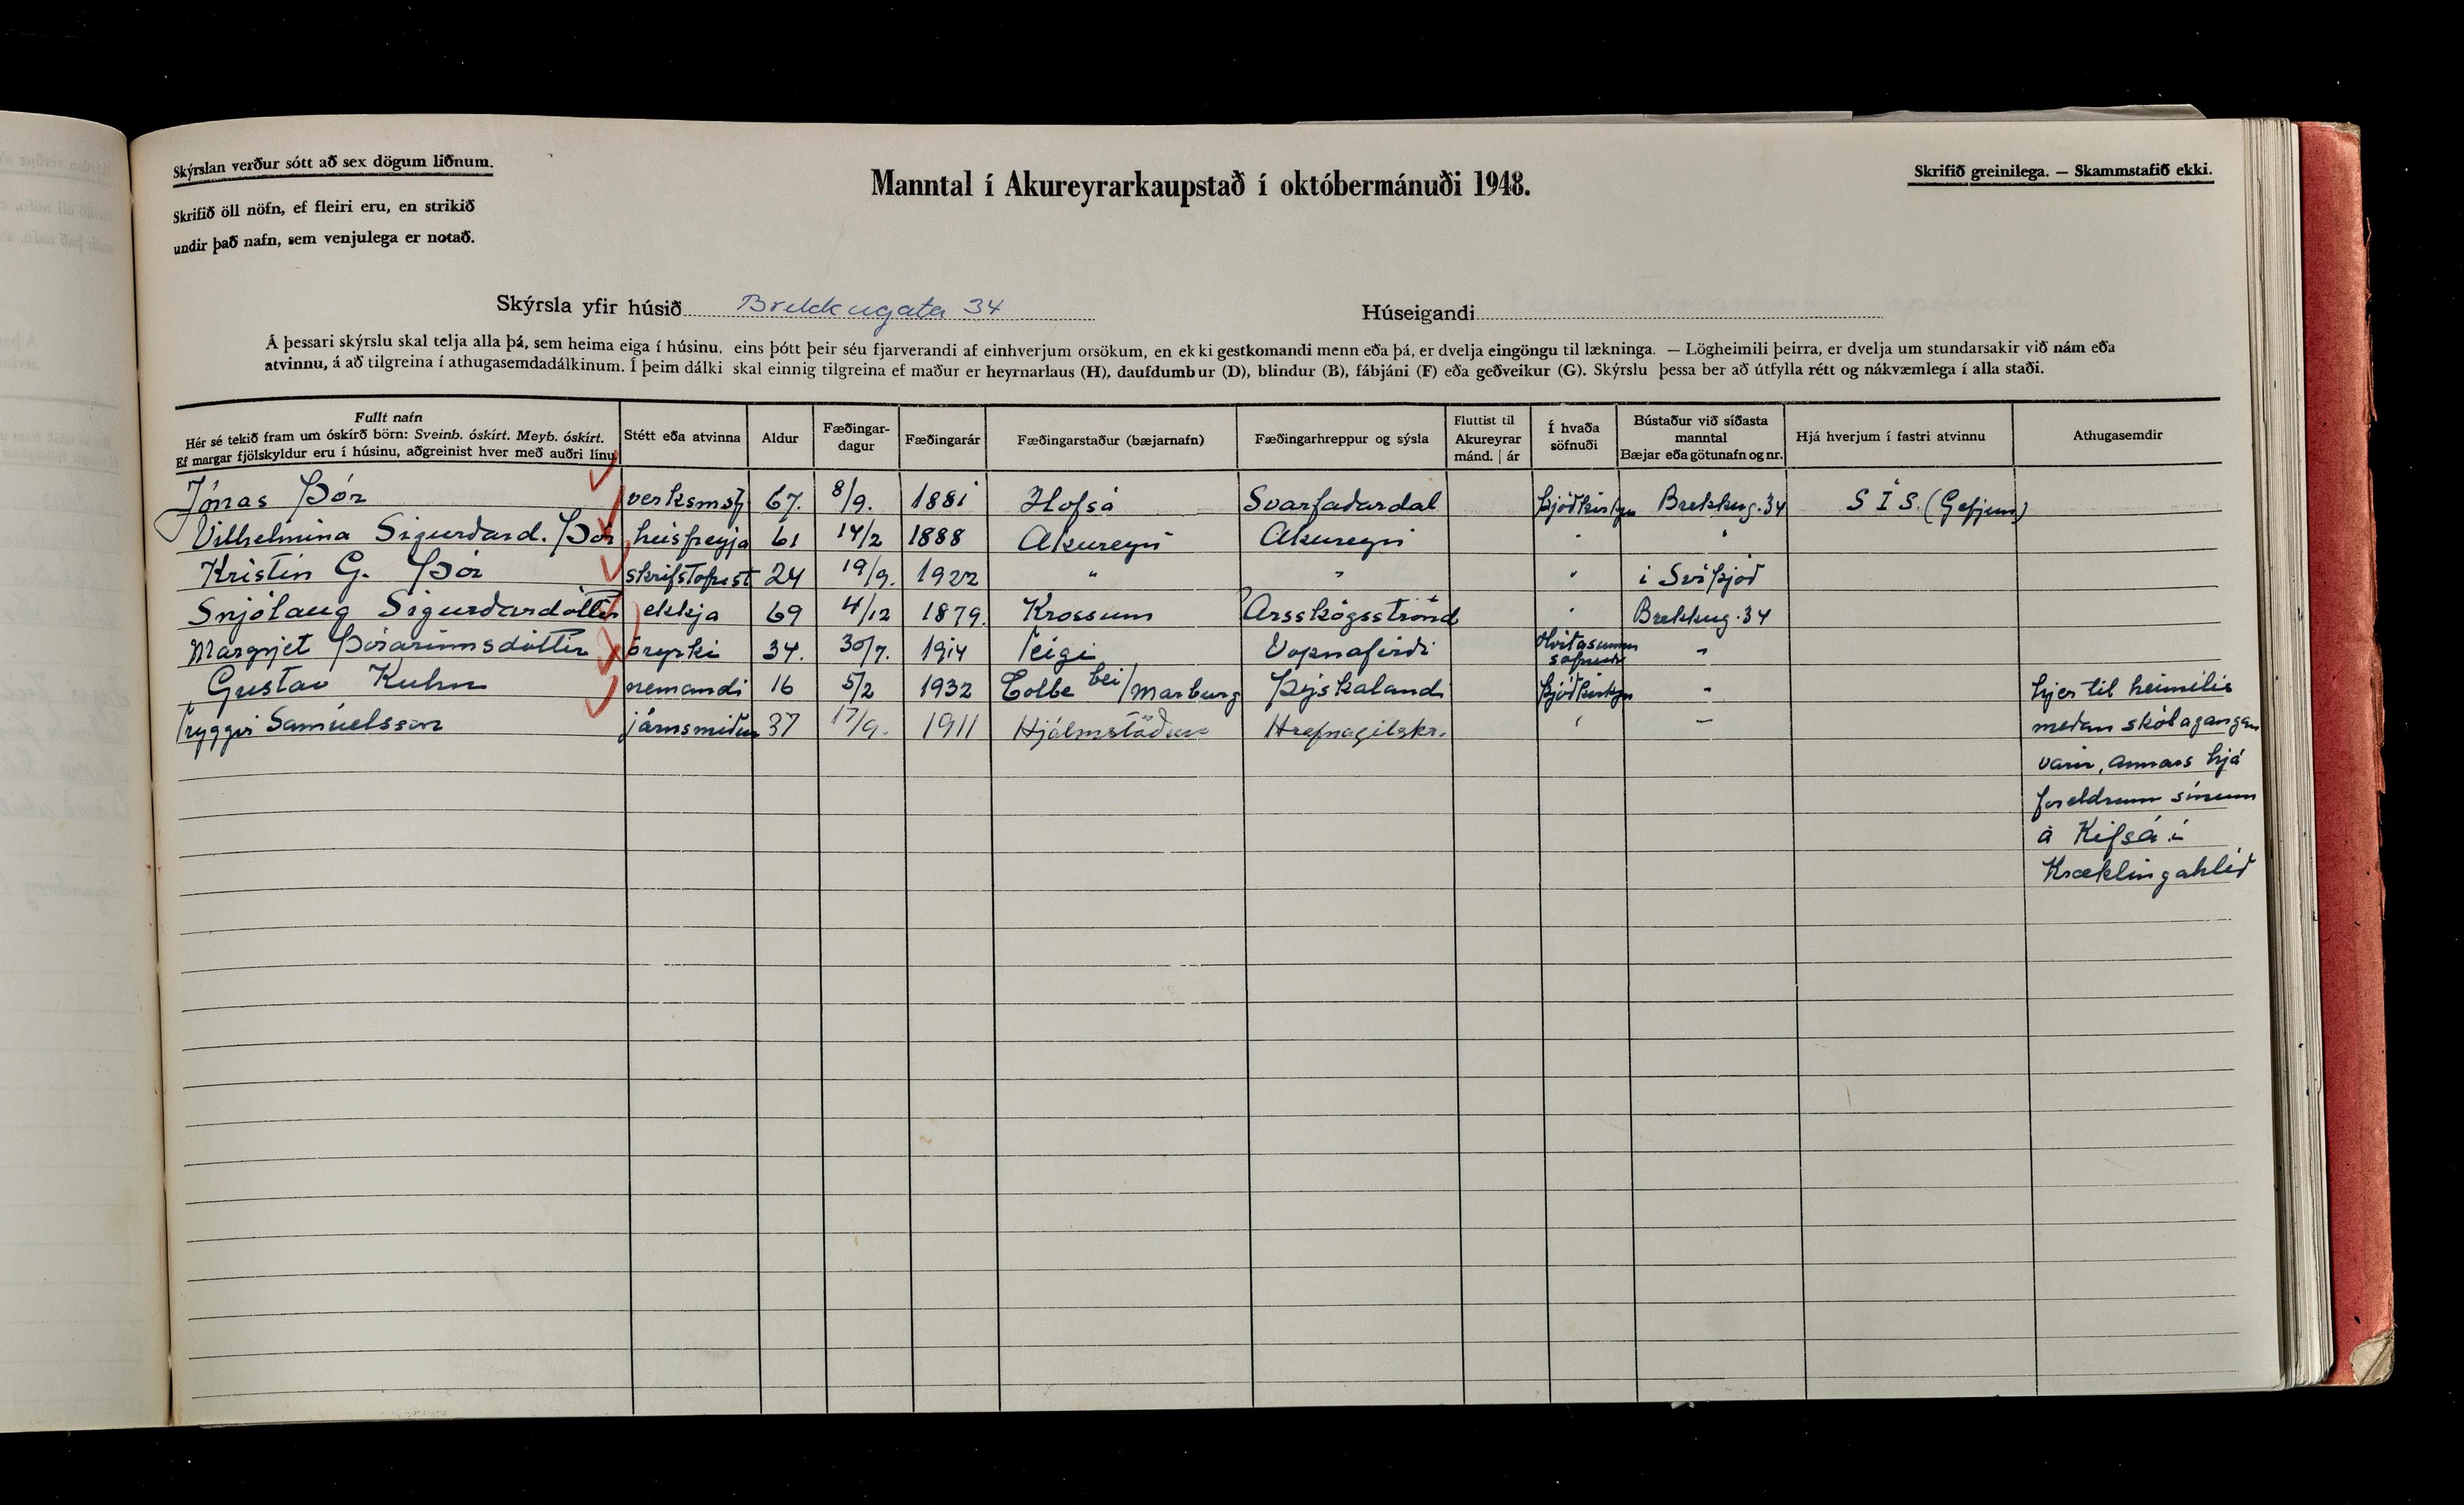 Skýrslan verður sótt að sex dögum liðnum.
Skrifið öll nöfn, ef fleiri eru, en strikið
undir það nafn, sem venjulega er notað.
Manntal í Akureyrarkaupstað í októbermánuði 1948.
Skrifið greinilega. — Skammstafið ekki.
Skýrsla yfir húsið Brekkugata 34
Húseigandi
Á þessari skýrslu skal telja alla þá, sem heima eiga í húsinu, eins þótt þeir séu fjarverandi af einhverjum orsökum, en ekki gestkomandi menn eða þá, er dvelja eingöngu til lækninga. — Lögheimili þeirra, er dvelja um stundarsakir við nám eða
atvinnu, á að tilgreina í athugasemdadálkinum. Í þeim dálki skal einnig tilgreina ef maður er heyrnarlaus (H), daufdumbur (D), blindur (B), fábjáni (F) eða geðveikur (G). Skýrslu þessa ber að útfylla rétt og nákvæmlega í alla staði.
Fullt nafn
Hér sé tekið fram um óskírð börn: Sveinb. óskírt. Meyb. óskírt.
Ef margar fjölskyldur eru í húsinu, aðgreinist hver með auðri línu
Stétt eða atvinna
Aldur
Fæðingar-
dagur
Fæðingarár
Fæðingarstaður (bæjarnafn)
Fæðingarhreppur og sýsla
Fluttist til
Akureyrar
mánd. | ár
Í hvaða
söfnuði
Bústaður við síðasta
manntal
Bæjar eða götunafn og nr.
Hjá hverjum í fastri atvinnu
Athugasemdir
Jónas Þór verksmstj 67. 8/9. 1881 Hofsá Svarfaðardal þjóðkirkju Brekkug. 34 S Í S. (Gefjun)
Vilhelmína Sigurðard. Þór húsfreyja 61 14/2 1888 Akureyri Akureyri " "
Kristín G. Þór skrifstofust 24 19/9. 1922 " " " í Svíþjóð
Snjólaug Sigurðardóttir ekkja 69 4/12 1879. Krossum Árskógsströnd " Brekkug. 34
Margrjet Þórarinnsdóttir öryrki 34. 30/7. 1914 Teigi Vopnafirði Hvítasunnu söfnuði "
Gustav Kuhn nemandi 16 5/2 1932 Colbe bei/Marburg Þýskalandi Þjóðkirkju " hjer til heimilis
Tryggvi Samúelsson járnsmiður 37 17/9. 1911 Hjálmstöðum Hrafnagilshr. " " meðan skólagangan
varir, annars hjá
foreldrum sínum
á Kífsá í
Kræklingahlíð